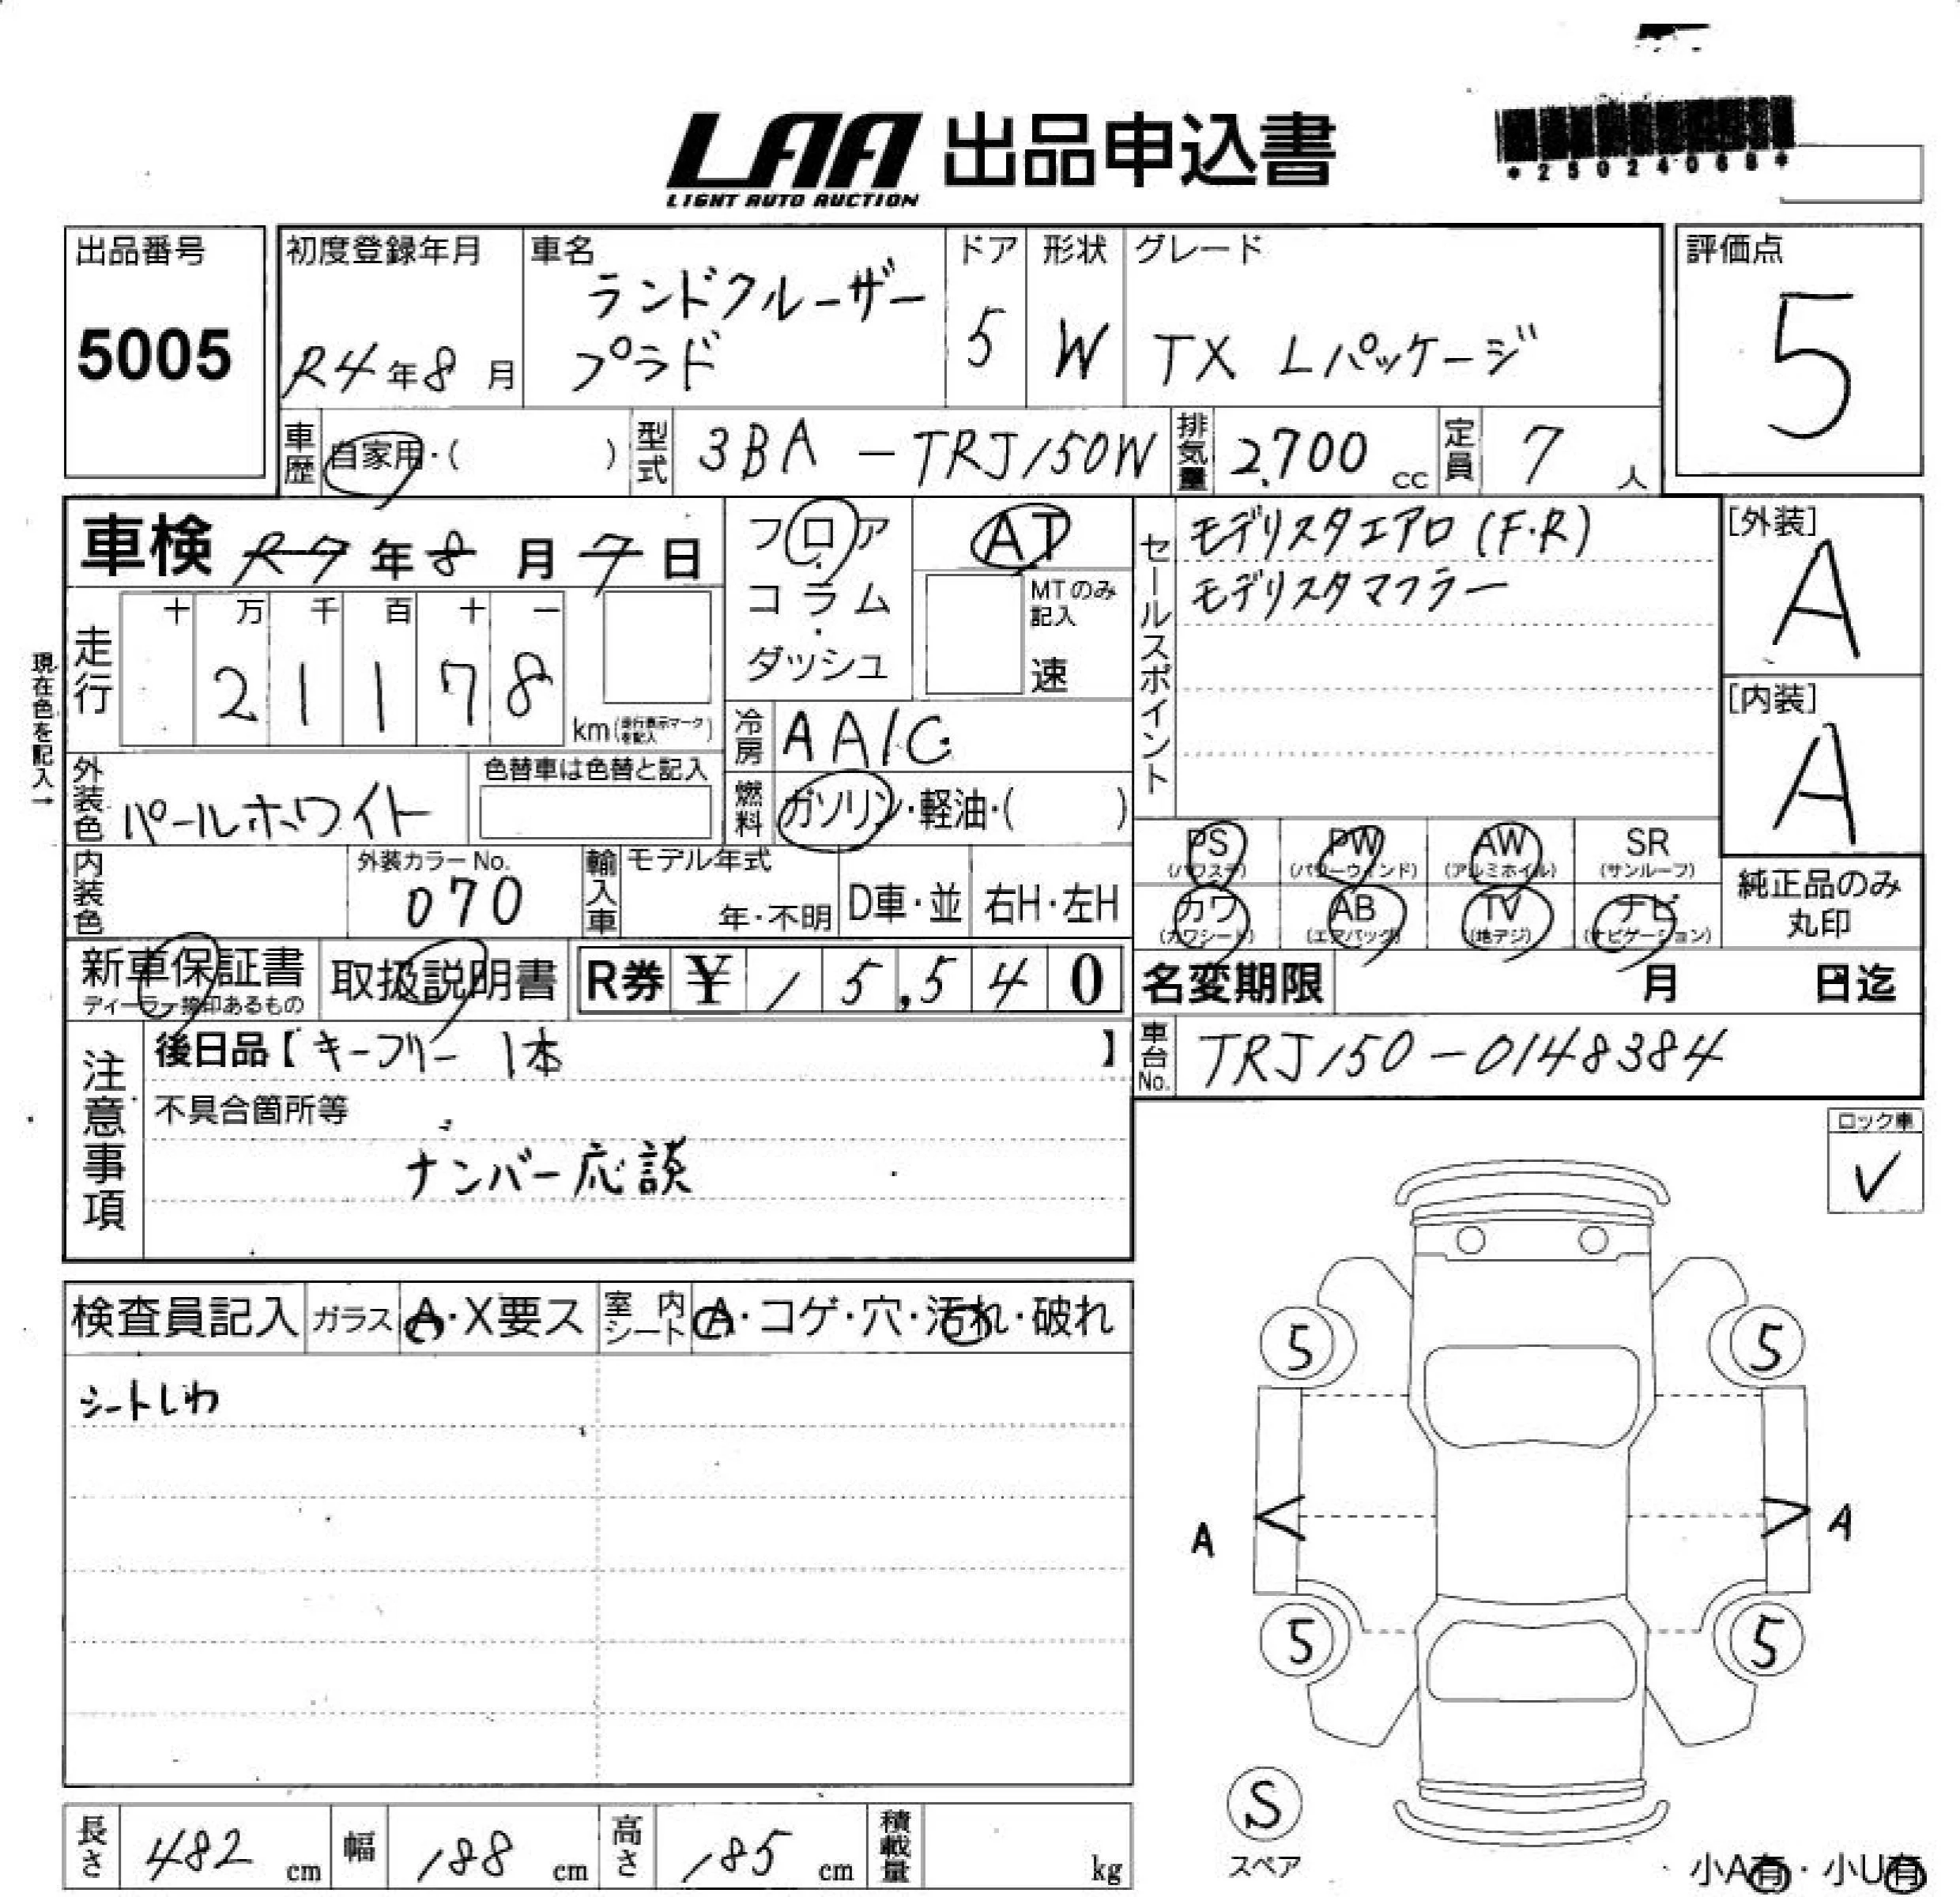 LAA 出品申込書
LIGHT AUTO AUCTION
*25024068*
出品番号
5005
初度登録年月
R4年8月
車名
ランドクルーザー
プラド
ドア
5
形状
W
グレード
TX Lパッケージ
評価点
5
車歴 自家用・( )
型式 3BA-TRJ150W
排気量 2,700 cc
定員 7 人
車検 R7年8月7日
フロア・コラム・ダッシュ
AT
MTのみ記入
速
セールスポイント
モデリスタエアロ(F・R)
モデリスタマフラー
[外装]
A
[内装]
A
現在色を記入→
走行
十 万 千 百 十 一
2 1 1 7 8
km(走行表示マークを記入)
冷房 AAIC
燃料 ガソリン・軽油・( )
外装色 パールホワイト
色替車は色替と記入
内装色
外装カラーNo.
070
輸入車
モデル年式
年・不明
D車・並
右H・左H
PS
(パワステ)
PW
(パワーウインド)
AW
(アルミホイル)
SR
(サンルーフ)
カワ
(カワシート)
AB
(エアバッグ)
TV
(地デジ)
ナビ
(ナビゲーション)
純正品のみ
丸印
新車保証書
ディーラー捺印あるもの
取扱説明書
R券 ¥ 15,540
名変期限 月 日迄
車台No. TRJ150-0148384
注意事項
後日品【キーフリー 1本 】
不具合箇所等
ナンバー応談
ロック車
✓
検査員記入 ガラス A・X要ス 室内シート A・コゲ・穴・汚れ・破れ
シートしわ
5 5
A A
5 5
S
スペア
長さ 482 cm 幅 188 cm 高さ 185 cm 積載量 kg
小A有・小U有